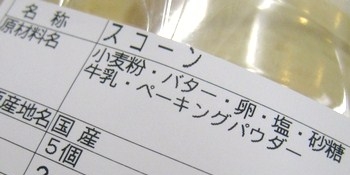 名称 スコーン
原材料名 小麦粉・バター・卵・塩・砂糖
牛乳・ベーキングパウダー
原産地名 国産
5個